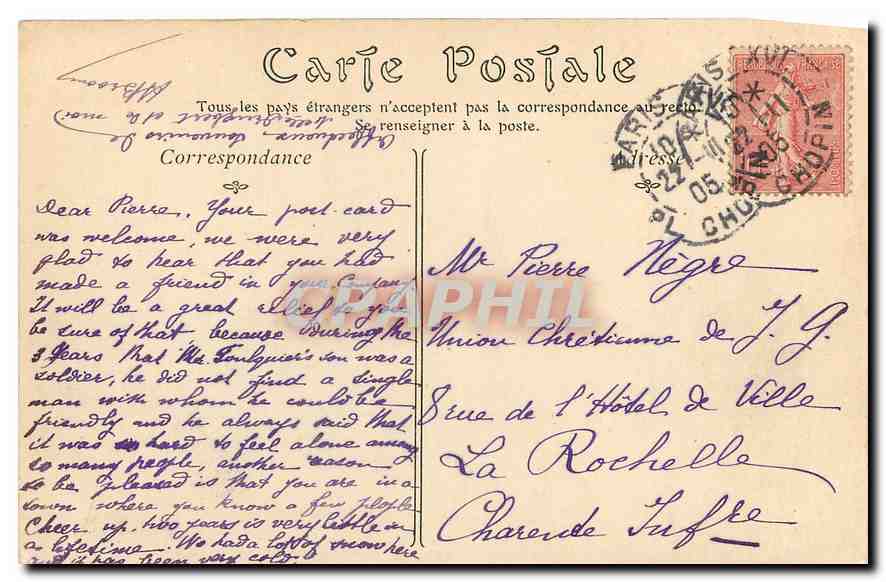 Carte Postale
Tous les pays étrangers n'acceptent pas la correspondance au recto.
Se renseigner à la poste.
Correspondance
Adresse
RÉPUBLIQUE FRANÇAISE
PARIS
22 -11
05
PL CHOPIN
CPAPHIL
Dear Pierre, Your post-card
was welcome, we were very
glad to hear that you had
made a friend in your Company
It will be a great relief to you
be sure of that because during the
3 years that Mr. Foulquier's son was a
soldier, he did not find a single
man with whom he could be
friendly and he always said that
it was so hard to feel alone among
so many people, another reason
to be pleased is that you are in a
town where you know a few people
Cheer up, two years is very little in
a lifetime. We had a lot of snow here
and it has been very cold.
Affectueux souvenirs de
et de moi
Mr Pierre Nègre
Union Chrétienne de J. G.
8 rue de l'Hôtel de Ville
La Rochelle
Charente Infre